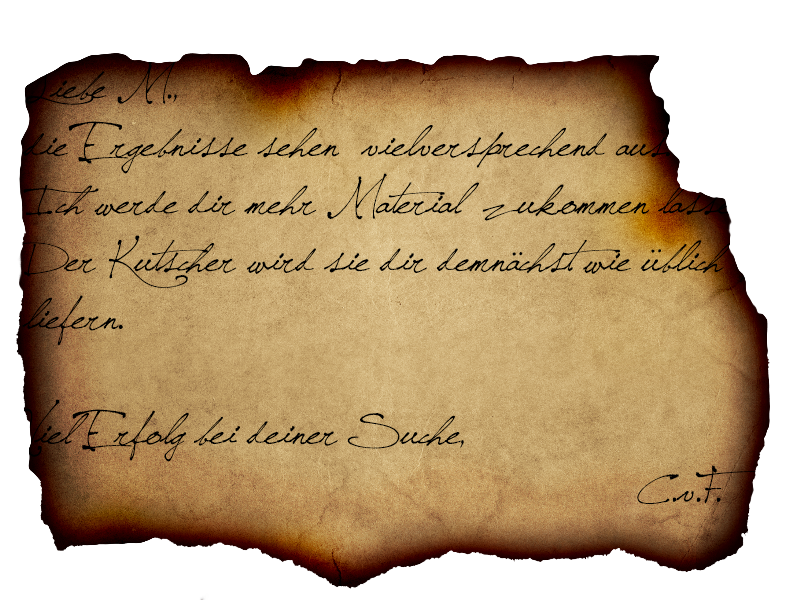 Liebe M.,
die Ergebnisse sehen vielversprechend aus
Ich werde dir mehr Material zukommen lass
Der Kutscher wird sie dir demnächst wie üblich
liefern.
Viel Erfolg bei deiner Suche,
C.v.F.